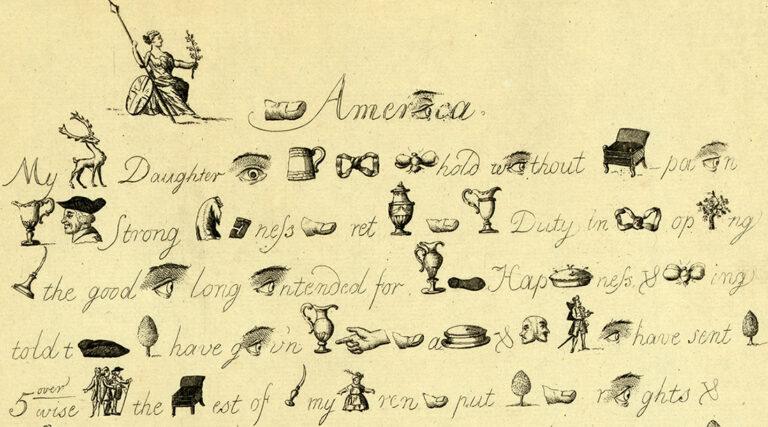 Amer ca.
My Daughter hold w thout -pa n
Strong neſs ret Duty in op ng
the good long ntended for Hap neſs, & ing
told t have g v'n a & have sent
5 over wise the est of my ren put r ghts &